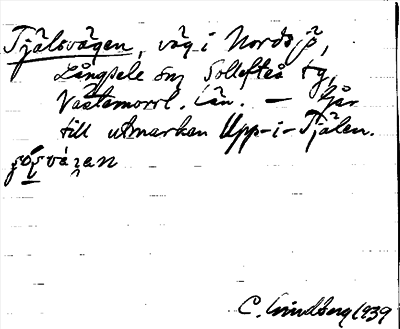 Tjälsvägen, väg i Nordsjö,
Långsele sn, Sollefteå tg,
Västernorrl. län. — Går
till utmarken Upp-i-Tjälen.
C. Lindberg 1939